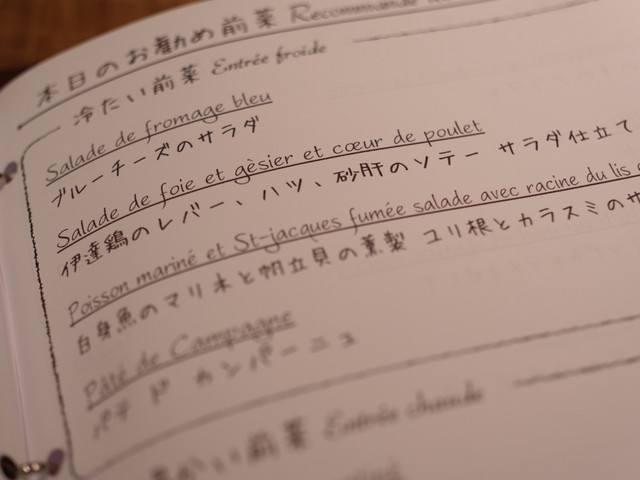 本日のお勧め前菜 Recommandé
冷たい前菜 Entrée froide
Salade de fromage bleu
ブルーチーズのサラダ
Salade de foie et gèsier et cœur de poulet
伊達鶏のレバー、ハツ、砂肝のソテー サラダ仕立て
Poisson mariné et St-jacques fumée salade avec racine du lis
白身魚のマリネと帆立貝の薫製 ユリ根とカラスミのサ
Pâté de Campagne
パテ ド カンパーニュ
かい前菜 Entrée chaude